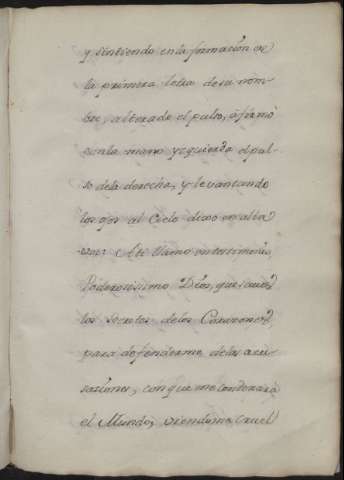 y sintiendo en la formación de
la primera letra de su nom-
bre, alterado el pulso, afirmó
con la mano yzquierda el pul-
so dela derecha, y levantando
los ojos al Cielo dixo en alta
voz: A te llamo en testimonio
Poderosisimo Dios, que saves
los secretos delos Corazones
para defenderme delas acu-
saziones, con que me condenara
el Mundo, viendome cruel